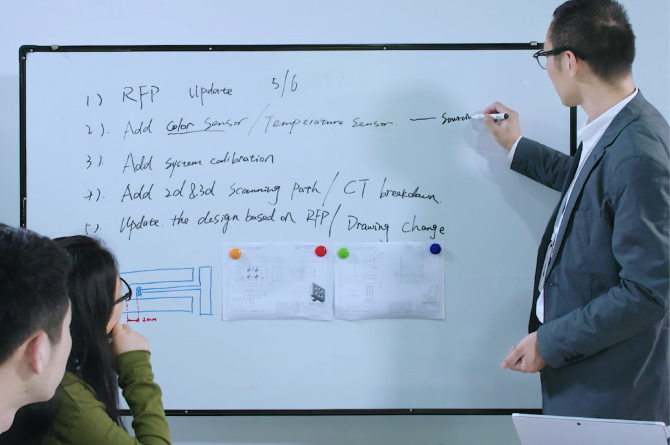 1) RFP Update 5/6
2). Add Color Sensor / Temperature Sensor — Sourc
3). Add system calibration
4). Add 2d&3d Scanning Path / CT breakdown.
5). Update the design based on RFP / Drawing change
2mm